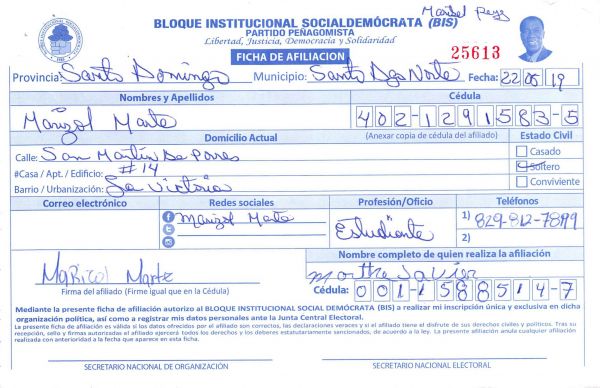 Maribel Perez
BLOQUE INSTITUCIONAL SOCIALDEMÓCRATA (BIS)
PARTIDO PEÑAGOMISTA
Libertad, Justicia, Democracia y Solidaridad
FICHA DE AFILIACION
25613
Provincia: Santo Domingo Municipio: Santo Dgo Norte Fecha: 22 05 19
Nombres y Apellidos Cédula
Marizol Marte 402-1291583-5
Domicilio Actual (Anexar copia de cédula del afiliado) Estado Civil
Calle: San Martin De Porres Casado
#Casa / Apt. / Edificio: #14 Soltero
Barrio / Urbanización: La Victoria Conviviente
Correo electrónico Redes sociales Profesión/Oficio Teléfonos
Marizol Marte Estudiante 1) 829-812-7899
2)
Nombre completo de quien realiza la afiliación
Maricol Marte Martha Javier
Firma del afiliado (Firme igual que en la Cédula) Cédula: 001-1588514-7
Mediante la presente ficha de afiliación autorizo al BLOQUE INSTITUCIONAL SOCIAL DEMÓCRATA (BIS) a realizar mi inscripción única y exclusiva en dicha
organización política, así como a registrar mis datos personales ante la Junta Central Electoral.
La presente ficha de afiliación es válida si los datos ofrecidos por el afiliado son correctos, las declaraciones veraces y si el afiliado tiene el disfrute de sus derechos civiles y políticos. Tras su
recepción, sello y firmas autorizadas el afiliado ejercerá todos los derechos y los deberes estatutariamente sancionados, de acuerdo a la ley. La presente afiliación anula cualquier afiliación
realizada con anterioridad a la fecha que aparece en esta ficha.
SECRETARIO NACIONAL DE ORGANIZACIÓN SECRETARIO NACIONAL ELECTORAL